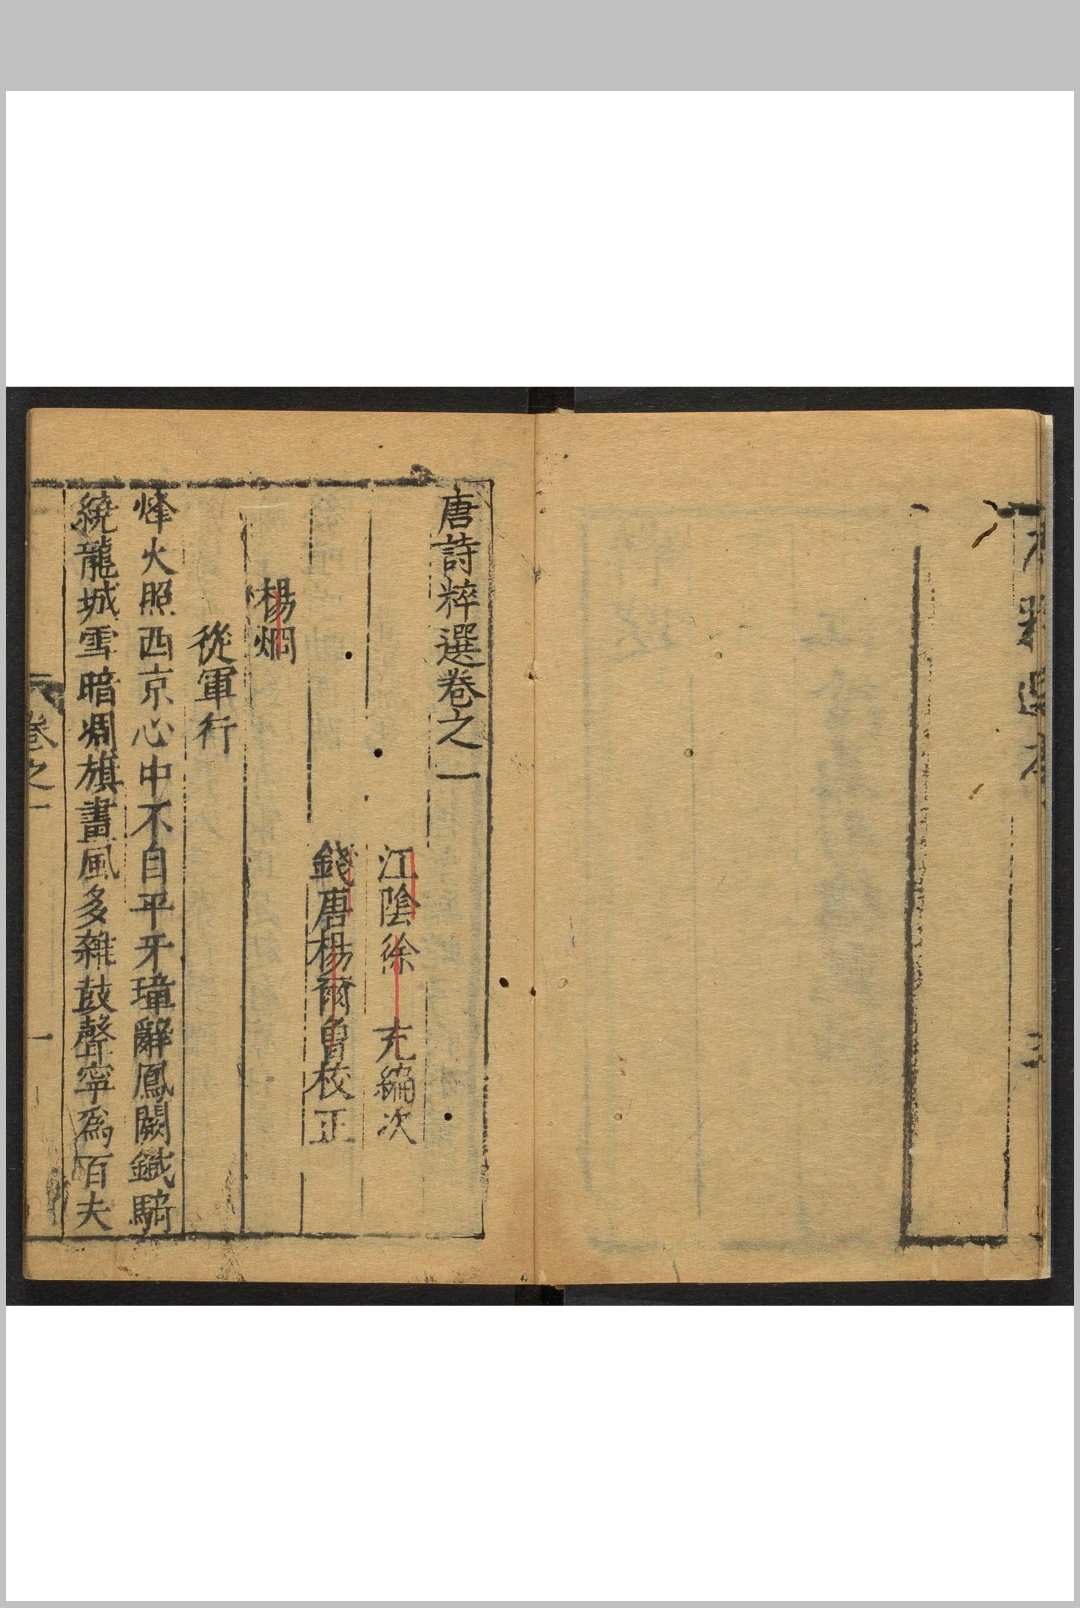 唐詩粹選卷之一
江陰徐 充編次
錢唐楊爾魯校正
楊烱
從軍行
烽火照西京心中不自平牙璋辭鳳闕鐵騎
繞龍城雪暗凋旗畫風多雜鼓聲寧爲百夫
卷之一
一